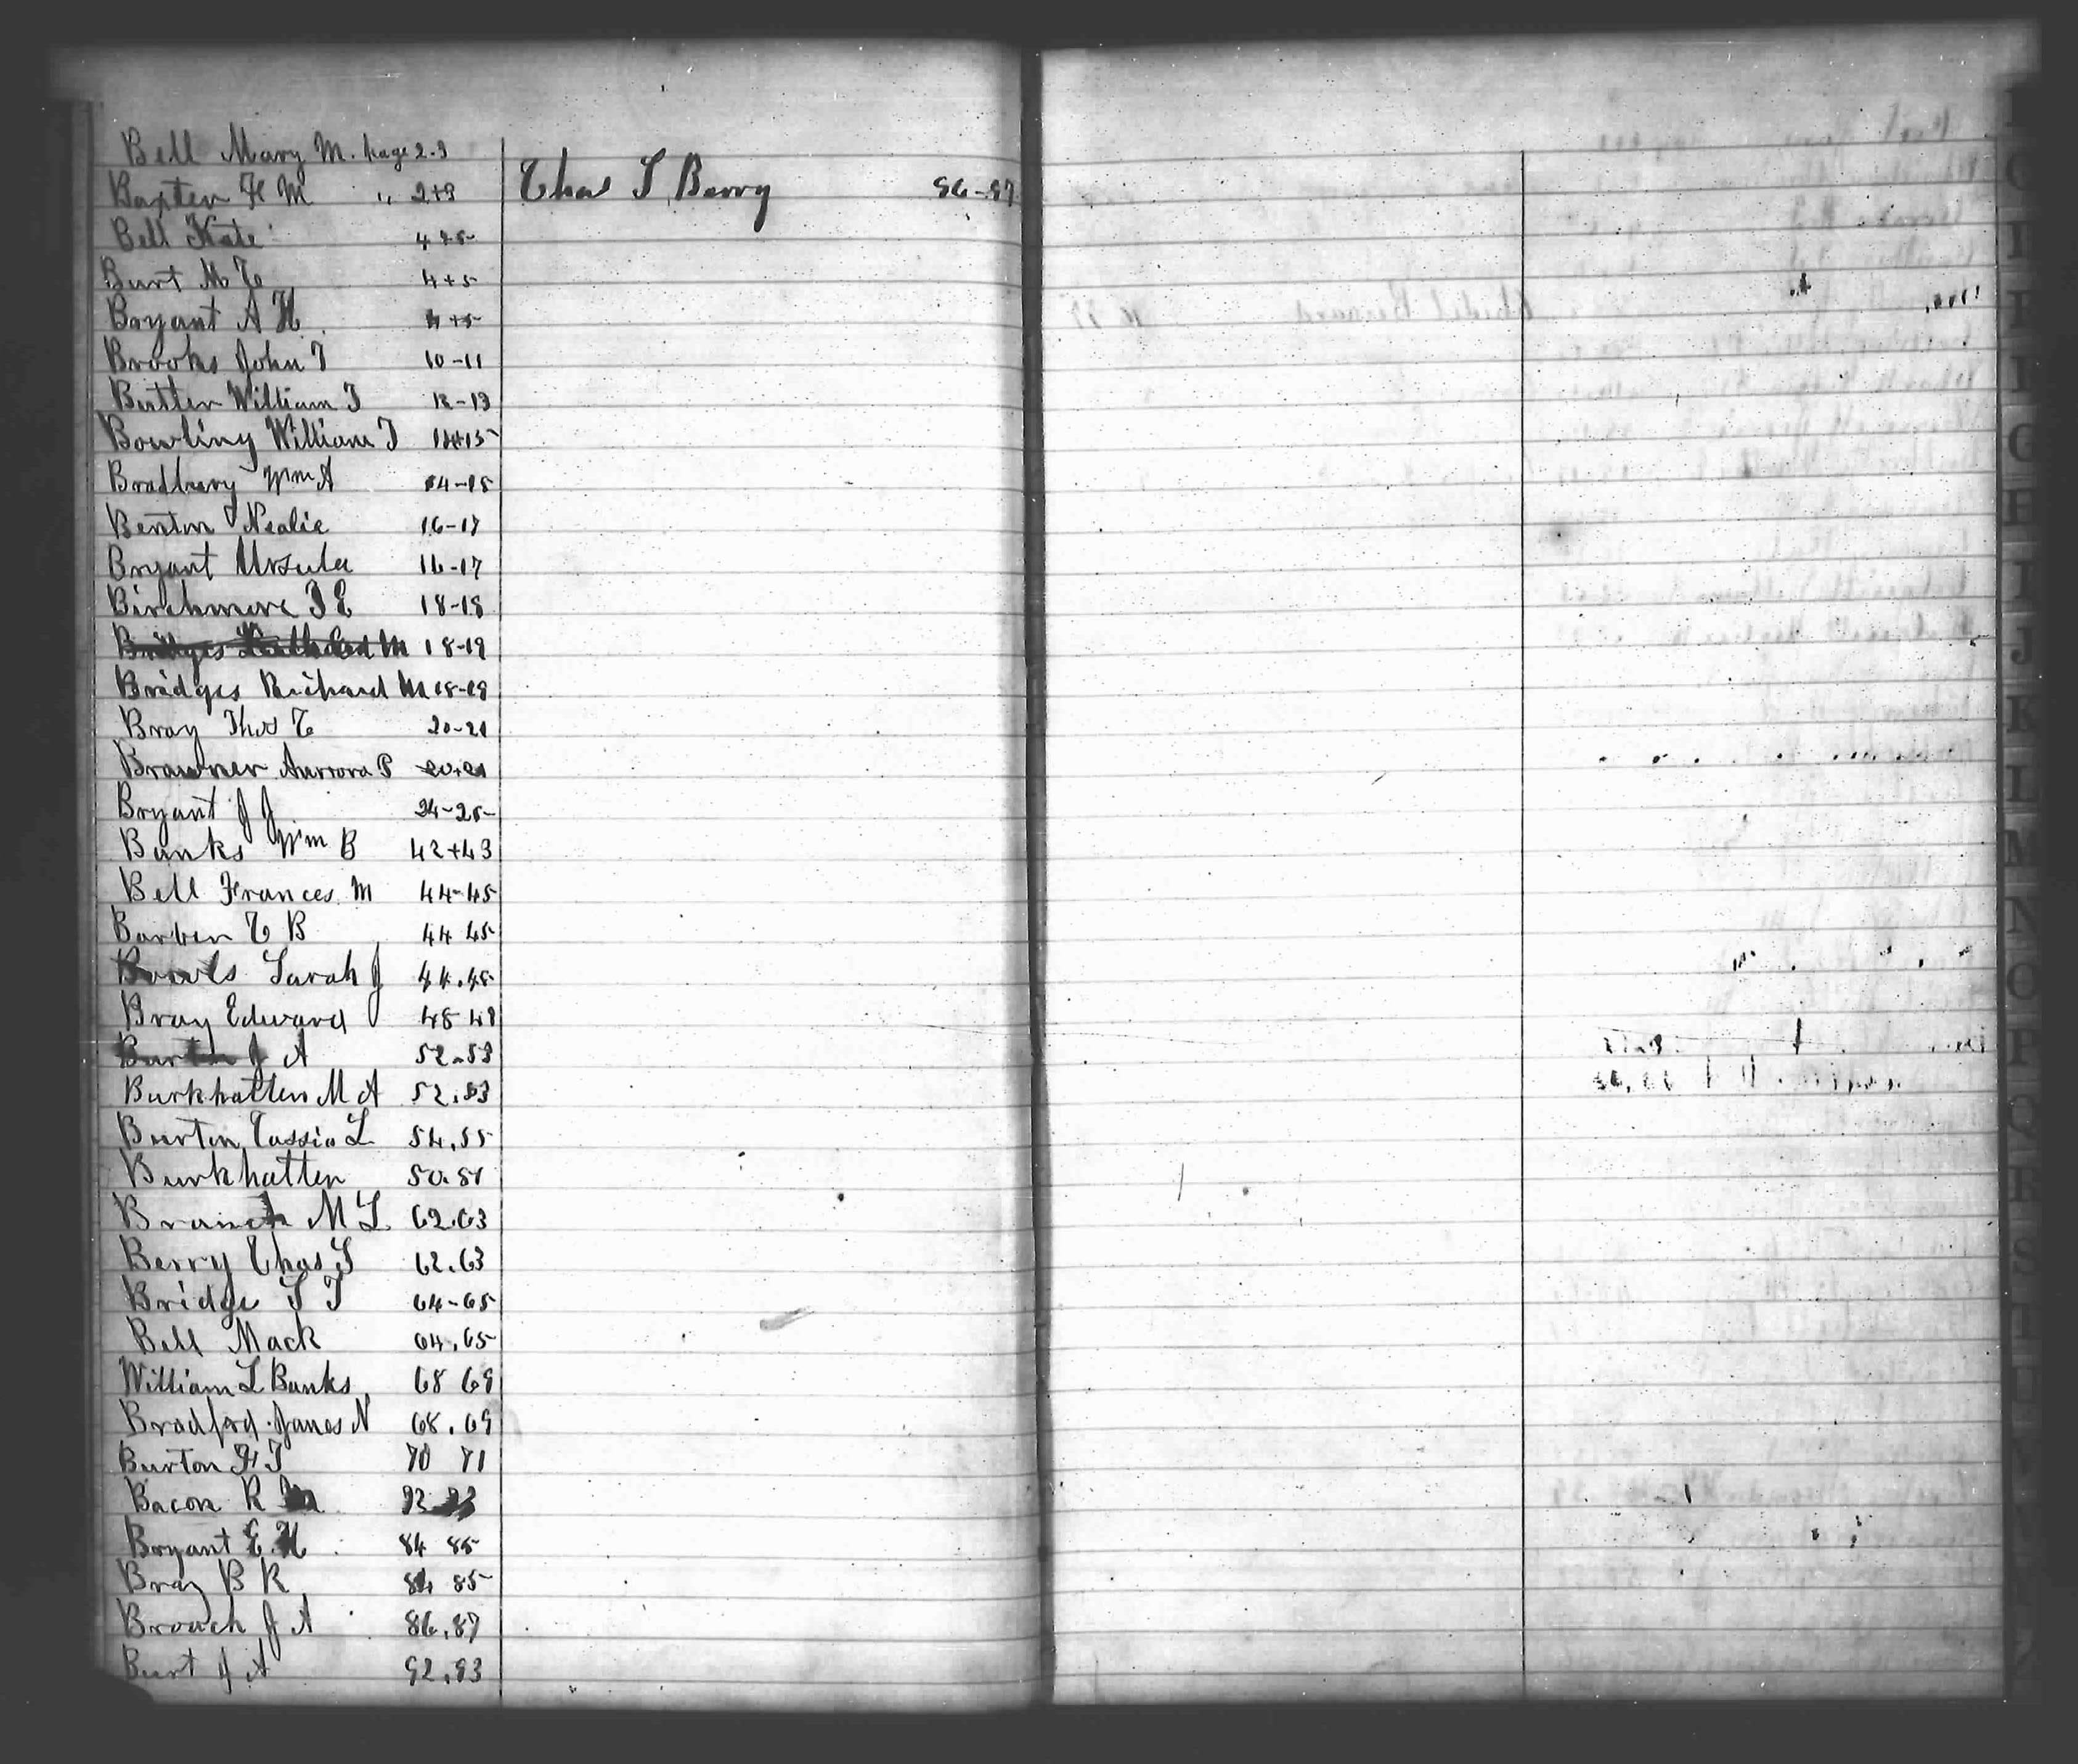 Bell Mary M. page 2-3
Baxter F M " 2+3
Bell Kate 4 & 5
Burt M C 4+5
Bryant A H 4+5
Brooks John T 10-11
Butler William T 12-13
Bowling William T 14+15
Bradbury Wm A 14-15
Benton Nealie 16-17
Bryant Ursula 16-17
Birchmore T E 18-19
Bridges M 18-19
Bridges Richard M 18-19
Bray Thos C 20-21
Brawner Aurrora P 20.21
Bryant J J 24-25
Banks Wm B 42+43
Bell Frances M 44-45
Barber C B 44 45
Bowls Sarah J 44.45
Bray Edward 48 49
Burton J A 52-53
Burkhatten M A 52.53
Burton Cassie L 54.55
Burkhatten 50.51
Branch M L 62.63
Berry Chas S 62.63
Bridge S T 64-65
Bell Mack 64.65
William L Banks 68 69
Bradford James N 68.69
Burton F T 70 71
Bacon R
Bryant E H 84 85
Bray B R 84 85
Broach J A 86.87
Burt J A 92.93
Chas S Berry 96-97
A
G
H
I
J
K
L
M
N
O
P
Q
R
S
T
U